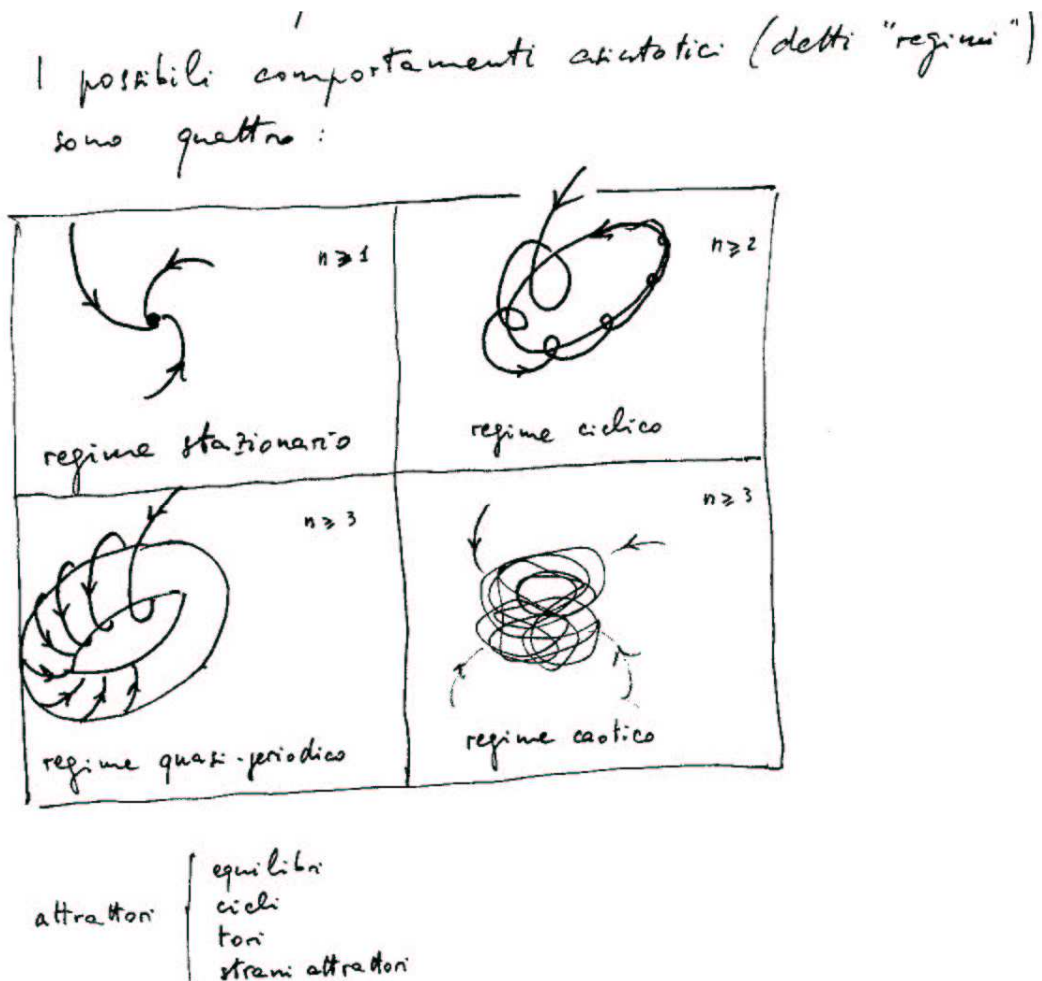 I possibili comportamenti asintotici (detti "regimi")
sono quattro:
n ≥ 1
n ≥ 2
regime stazionario
regime ciclico
n ≥ 3
n ≥ 3
regime quasi-periodico
regime caotico
attrattori
equilibri
cicli
tori
strani attrattori